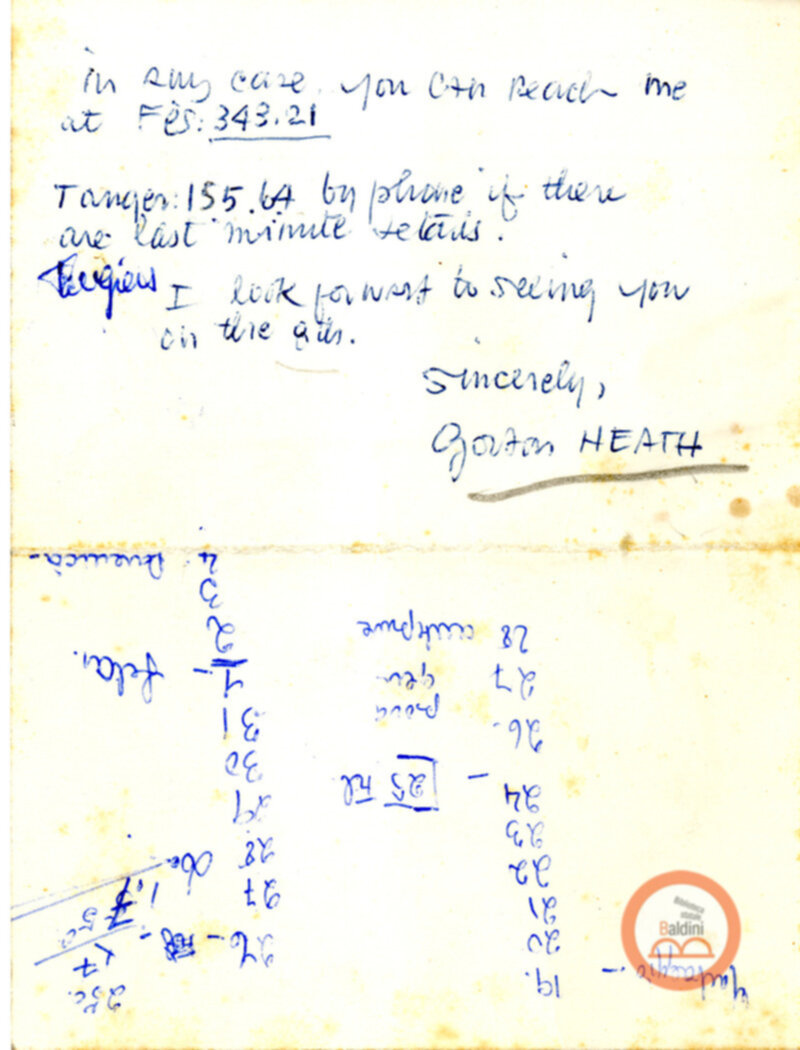 in any case, you can reach me
at Fès: 343.21
Tanger: 155.64 by phone if there
are last minute details.
I look forward to seeing you
on the 9th.
Sincerely,
Gordon HEATH
19.
20
21
22
23
24 -
25
26.
prova
27
gen
28
26 -
27
28
29
30
31
1 -
2
3
4
250
x 7
1,7
Biblioteca
statale
Baldini